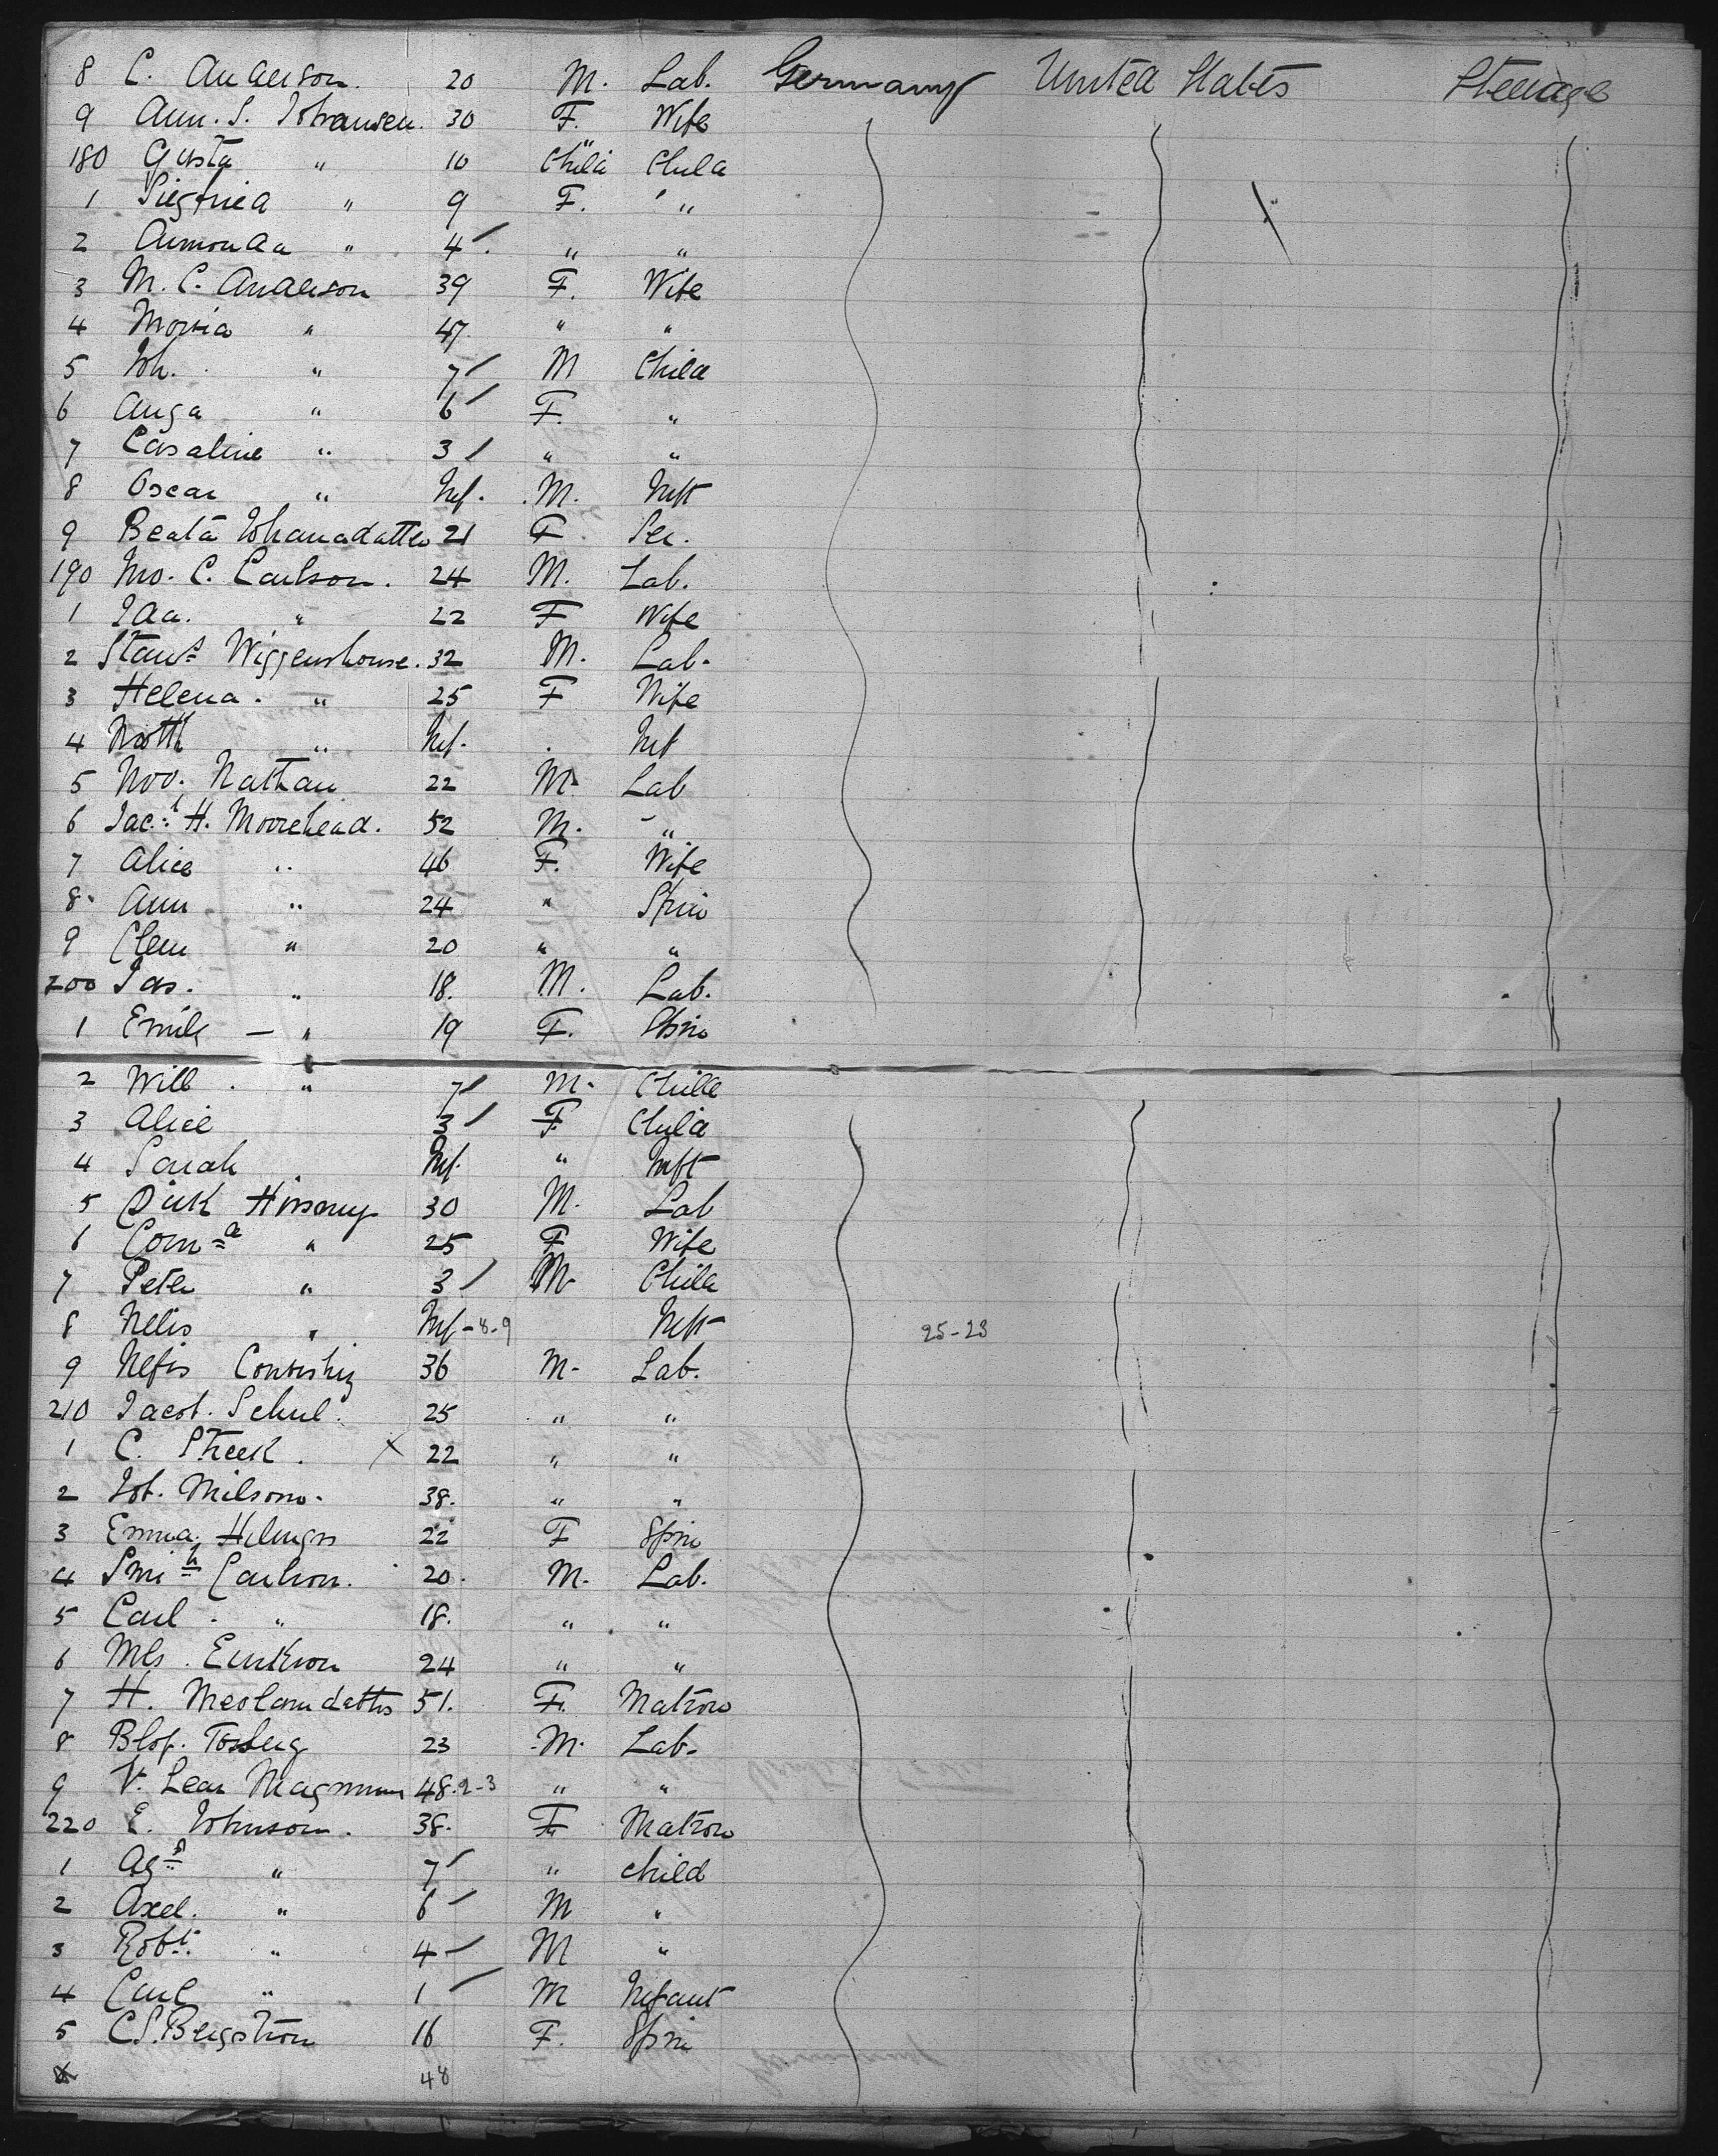 8 C. Anderson. 20 M. Lab. Germany United States Steerage
9 Ann. S. Johansen. 30 F. Wife
180 Gusta " 10 Child Child
1 Siegfried " 9 F. "
2 Armonda " 4 " "
3 M. C. Anderson 39 F. Wife
4 Maria " 47 " "
5 Joh. " 7 M Child
6 Anga " 6 F. "
7 Casaline " 3 " "
8 Oscar " Inf. M. Inft
9 Beata Johanadatter 21 F Ser.
190 Jno. C. Carlson. 24 M. Lab.
1 Ida. " 22 F Wife
2 Stans Wiggenshouse. 32 M. Lab.
3 Helena. " 25 F Wife
4 " Inf. Inf
5 Nathan 22 M. Lab
6 Jac. H. Moorehead. 52 M. "
7 Alice " 46 F. Wife
8 Ann " 24 " Spin
9 Clem " 20 " "
200 Jas. " 18. M. Lab.
1 Emily — " 19 F. Spin
2 Will. " 7 M. Child
3 Alice 3 F Child
4 Sarah Inf. " Inft
5 Dirk 30 M. Lab
6 Corna " 25 F Wife
7 Peter " 3 M. Child
8 Nelis " Inf - 8-9 Inft 25-23
9 36 M. Lab.
210 Jacob. Schul. 25 " "
1 C. Streek. X 22 " "
2 Job. Milsom. 38. " "
3 Emma 22 F Spin
4 Carlson. 20. M. Lab.
5 Carl. " 18. " "
6 Mls. Erickson 24 " "
7 H. 51. F. Matron
8 23 M. Lab.
9 V. Lear Magnum 48. 2-3 " "
220 E. Johnson. 38. F Matron
1 Ags " 7 " child
2 Axel. " 6 M "
3 Robt. " 4 M "
4 Carl " 1 M Infant
5 C.S. Bergstrom 16 F. Spin
48